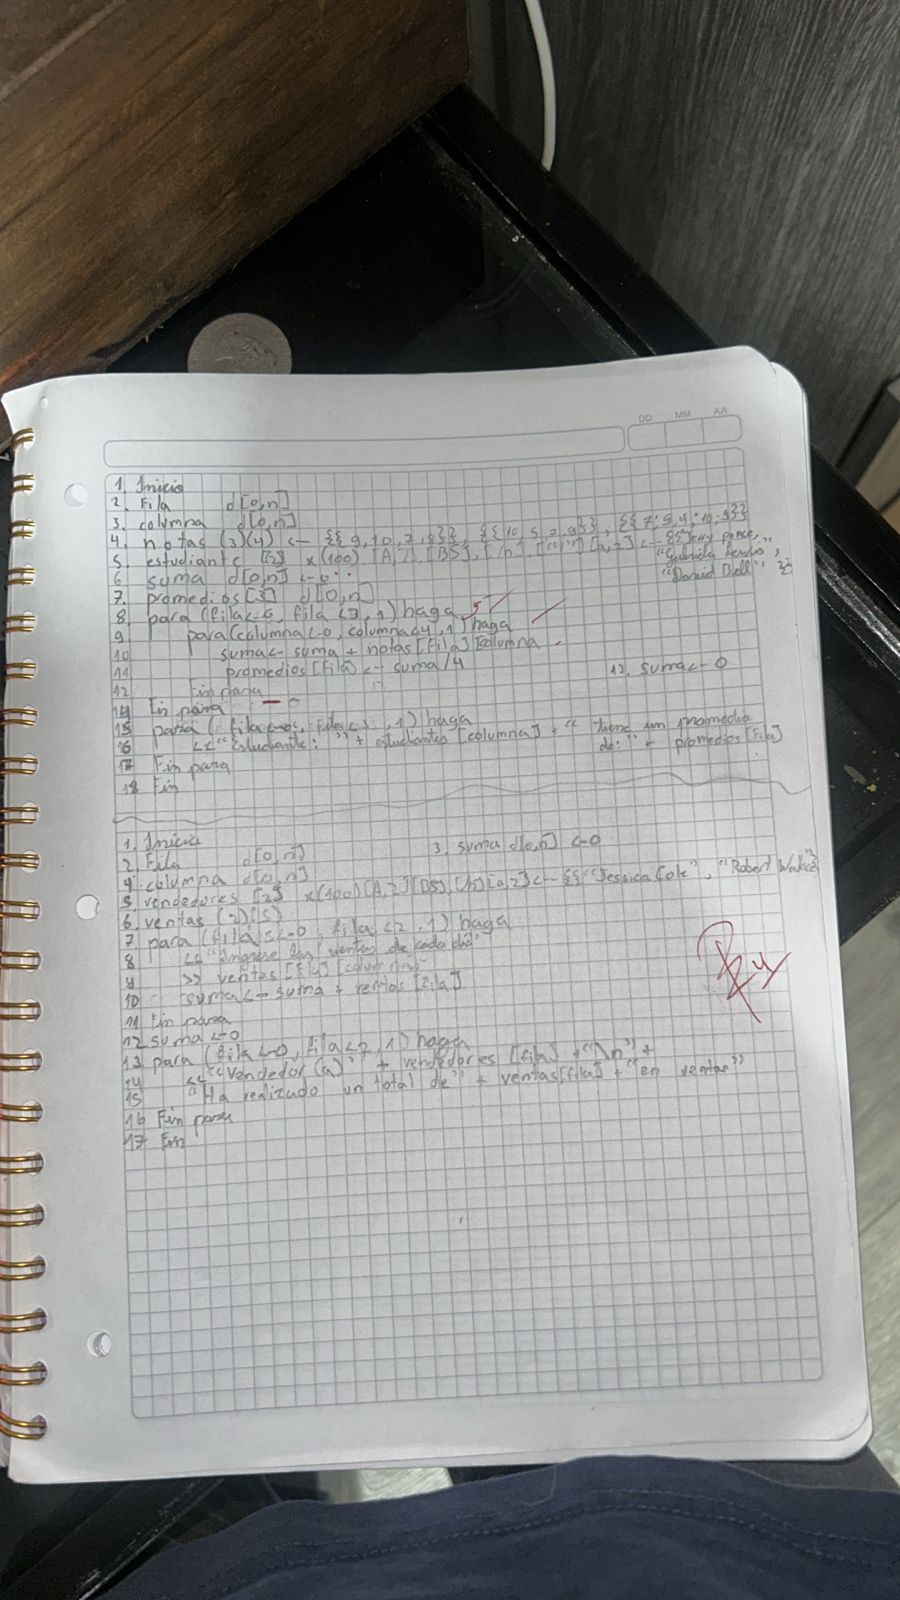 DD MM AA
1. Inicio
2. Fila d[0,n]
3. columna d[0,n]
4. notas (3)(4) <- {{ 9,10,7,8}}, {{10,5,7,9}}, {{7,9,4,10,9}}
5. estudiante [3] x(100) [A,Z] [BS], [/n], [","] [a,z] <- {{"Jerry ponce,"
"Gabriela
"Daniel Bell" }}
6 suma d[0,n] <-0
7. promedios [3] d[0,n]
8. para (fila<-0, fila <3, 1) haga
9 para(columna<-0, columna<4, 1) haga
10 suma<- suma + notas [fila] [columna
11 promedios [fila] <- suma/4
13. suma<- 0
12 Fin para
14 Fin para
15 para ( fila<-0, fila<3, 1) haga
16 <<"Estudiante: "+ estudiantes [columna] + " tiene un promedio
de: "+ promedios [fila]
17 Fin para
18 Fin
1. Inicio
3. suma d[0,n] <-0
2. Fila d[0,n]
4. columna d[0,n]
5 vendedores [2] x(100) [A,Z] [BS], [/n] [a,z] <- {{"Jessica Cole", "Robert
6 ventas (2)(5)
7 para (fila <-0, fila <2, 1) haga
8 << "Ingrese las ventas de cada día"
9 >> ventas [fila] [columna]
10 suma <- suma + ventas [fila]
11 Fin para
12 suma <-0
13 para (fila <-0, fila <2, 1) haga
14 << "vendedor (a)" + vendedores [fila] + "\n" +
15 "Ha realizado un total de" + ventas[fila] + "en ventas"
16 Fin para
17 Fin